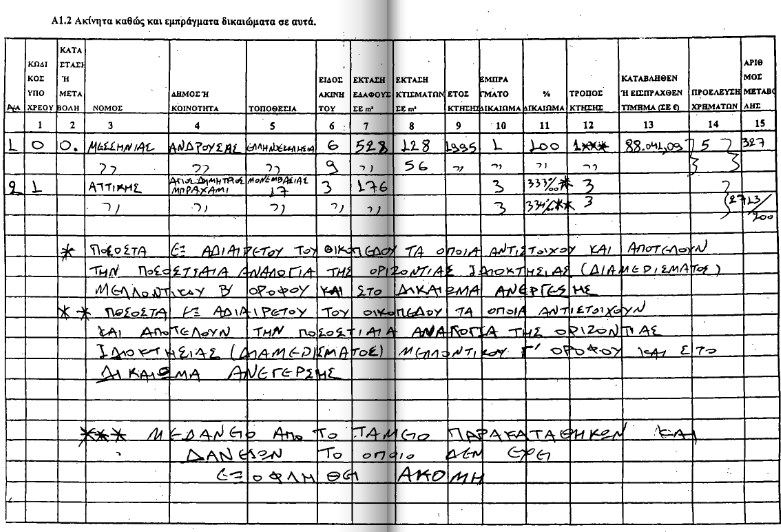 Α1.2 Ακίνητα καθώς και εμπράγματα δικαιώματα σε αυτά.
Α/Α ΚΩΔΙΚΟΣ ΥΠΟΧΡΕΟΥ ΚΑΤΑΣΤΑΣΗ Ή ΜΕΤΑΒΟΛΗ ΝΟΜΟΣ ΔΗΜΟΣ Ή ΚΟΙΝΟΤΗΤΑ ΤΟΠΟΘΕΣΙΑ ΕΙΔΟΣ ΑΚΙΝΗΤΟΥ ΕΚΤΑΣΗ ΕΔΑΦΟΥΣ ΣΕ m² ΕΚΤΑΣΗ ΚΤΙΣΜΑΤΩΝ ΣΕ m² ΕΤΟΣ ΚΤΗΣΗΣ ΕΜΠΡΑΓΜΑΤΟ ΔΙΚΑΙΩΜΑ % ΔΙΚΑΙΩΜΑ ΤΡΟΠΟΣ ΚΤΗΣΗΣ ΚΑΤΑΒΛΗΘΕΝ Ή ΕΙΣΠΡΑΧΘΕΝ ΤΙΜΗΜΑ (ΣΕ €) ΠΡΟΕΛΕΥΣΗ ΧΡΗΜΑΤΩΝ ΑΡΙΘΜΟΣ ΜΕΤΑΒΟΛ
1 2 3 4 5 6 7 8 9 10 11 12 13 14 15
1 0 0. ΜΕΣΣΗΝΙΑΣ ΑΝΔΡΟΥΣΑΣ ΕΛΛΗΝΟΕΚΚΛΗΣΙΑ 6 528 128 1995 1 100 1*** 88.041,09 5 327
" " " 9 " 56 " " " "
2 1 ΑΤΤΙΚΗΣ ΑΓΙΟΣ ΔΗΜΗΤΡΙΟΣ ΜΠΡΑΧΑΜΙ ΜΟΝΕΜΒΑΣΙΑΣ 17 3 176 3 333‰* 3
" " " " 3 334‰** 3
* ΠΟΣΟΣΤΑ ΕΞ ΑΔΙΑΙΡΕΤΟΥ ΤΟΥ ΟΙΚΟΠΕΔΟΥ ΤΑ ΟΠΟΙΑ ΑΝΤΙΣΤΟΙΧΟΥ ΚΑΙ ΑΠΟΤΕΛΟΥΝ
ΤΗΝ ΠΟΣΟΣΤΙΑΙΑ ΑΝΑΛΟΓΙΑ ΤΗΣ ΟΡΙΖΟΝΤΙΑΣ ΙΔΙΟΚΤΗΣΙΑΣ (ΔΙΑΜΕΡΙΣΜΑΤΟΣ)
ΜΕΛΛΟΝΤΙΚΟΥ Β' ΟΡΟΦΟΥ ΚΑΙ ΣΤΟ ΔΙΚΑΙΩΜΑ ΑΝΕΡΓΕΣΗΣ
** ΠΟΣΟΣΤΑ ΕΞ ΑΔΙΑΙΡΕΤΟΥ ΤΟΥ ΟΙΚΟΠΕΔΟΥ ΤΑ ΟΠΟΙΑ ΑΝΤΙΣΤΟΙΧΟΥΝ
ΚΑΙ ΑΠΟΤΕΛΟΥΝ ΤΗΝ ΠΟΣΟΣΤΙΑΙΑ ΑΝΑΛΟΓΙΑ ΤΗΣ ΟΡΙΖΟΝΤΙΑΣ
ΙΔΙΟΚΤΗΣΙΑΣ (ΔΙΑΜΕΡΙΣΜΑΤΟΣ) ΜΕΛΛΟΝΤΙΚΟΥ Γ' ΟΡΟΦΟΥ ΚΑΙ ΣΤΟ
ΔΙΚΑΙΩΜΑ ΑΝΕΓΕΡΣΗΣ
*** ΜΕ ΔΑΝΕΙΟ ΑΠΟ ΤΟ ΤΑΜΕΙΟ ΠΑΡΑΚΑΤΑΘΗΚΩΝ ΚΑΙ
ΔΑΝΕΙΩΝ ΤΟ ΟΠΟΙΟ ΔΕΝ ΕΧΕΙ
ΕΞΟΦΛΗΘΕΙ ΑΚΟΜΗ